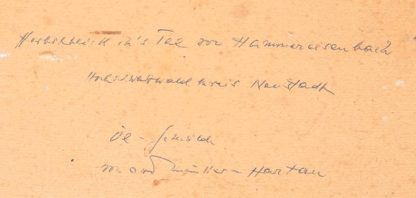 Herbstblick in's Tal von Hammereisenbach
Hochschwarzwald Kreis Neustadt
Öl-Gemälde
von Müller-Hartau